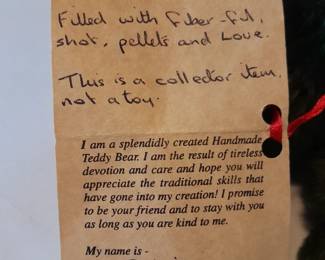 Filled with fiber-fil,
shot, pellets and Love.
This is a collector item,
not a toy.
I am a splendidly created Handmade
Teddy Bear. I am the result of tireless
devotion and care and hope you will
appreciate the traditional skills that
have gone into my creation! I promise
to be your friend and to stay with you
as long as you are kind to me.
My name is -